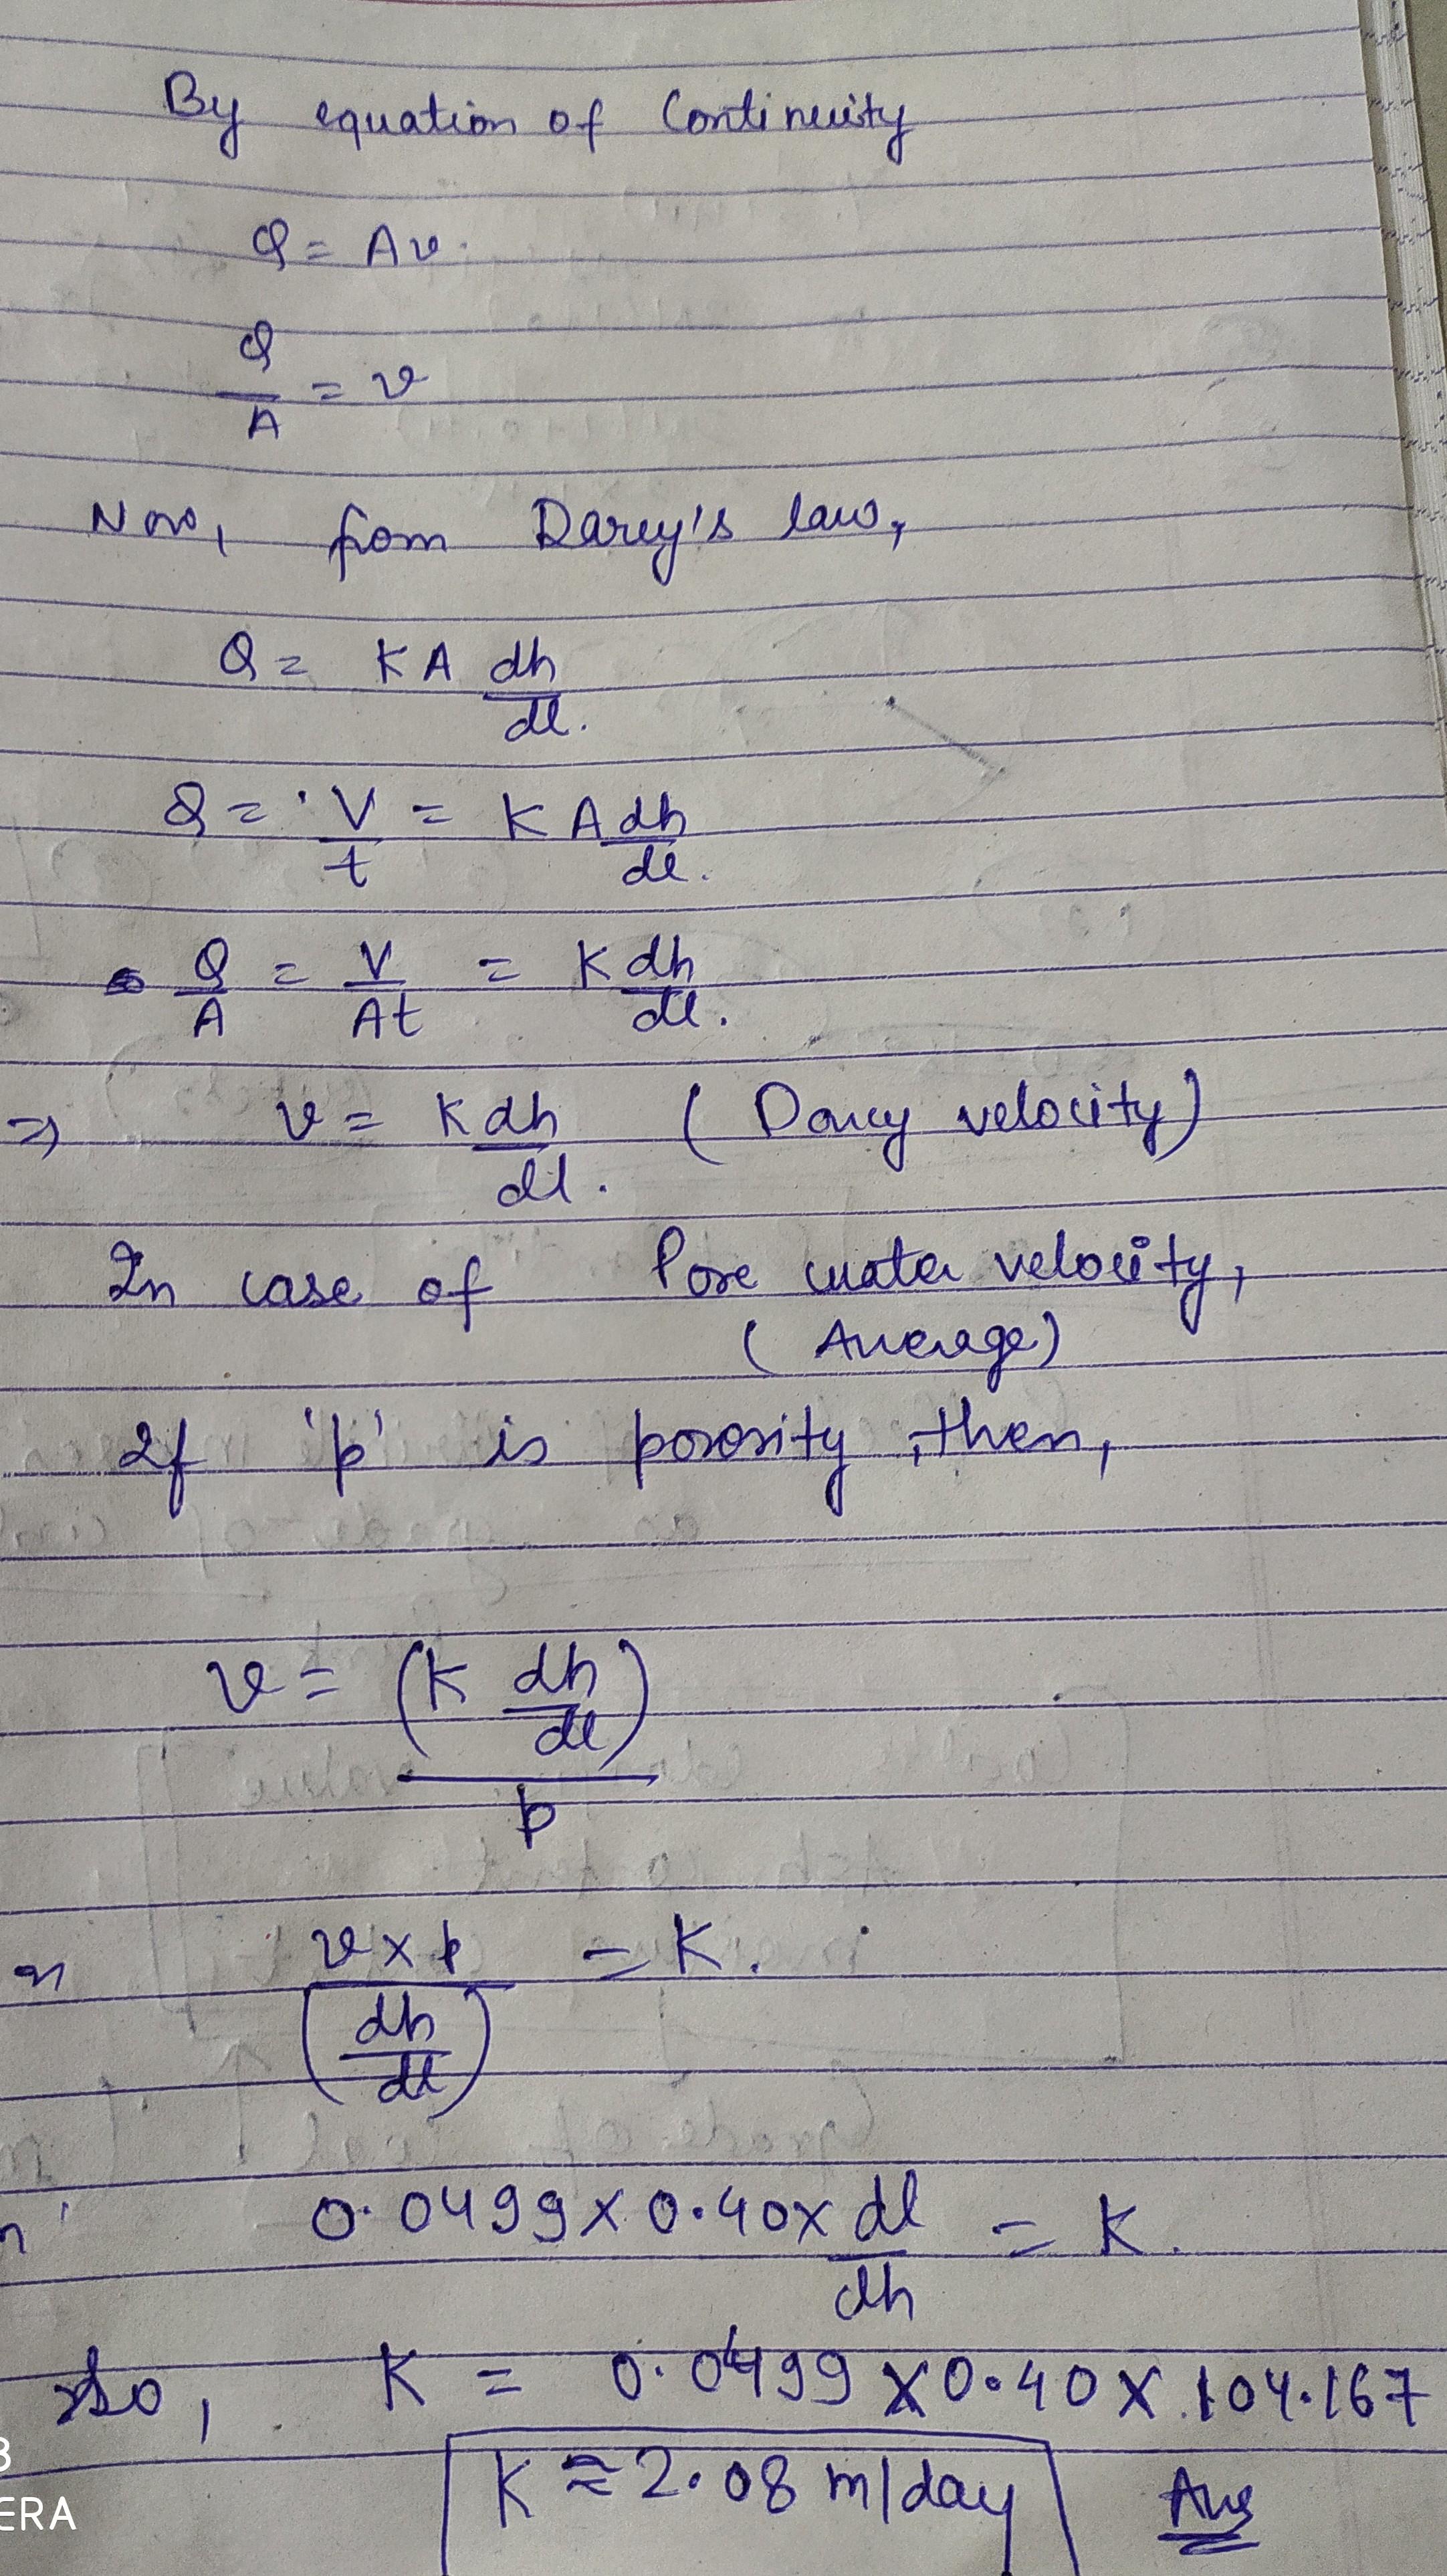 By equation of Continuity
Q = Av.
Q/A = v
Now, from Darcy's law,
Q = KA dh/dl.
Q = V/t = KA dh/dl.
Q/A = V/At = K dh/dl.
=> v = K dh/dl. (Darcy velocity)
In case of Pore water velocity,
(Average)
If 'p' is porosity, then,
v = (K dh/dl)/p
v×p/(dh/dl) = K.
0.0499 × 0.40 × dl/dh = K.
So, K = 0.0499 × 0.40 × 104.167
K ≈ 2.08 m/day Ans
ERA